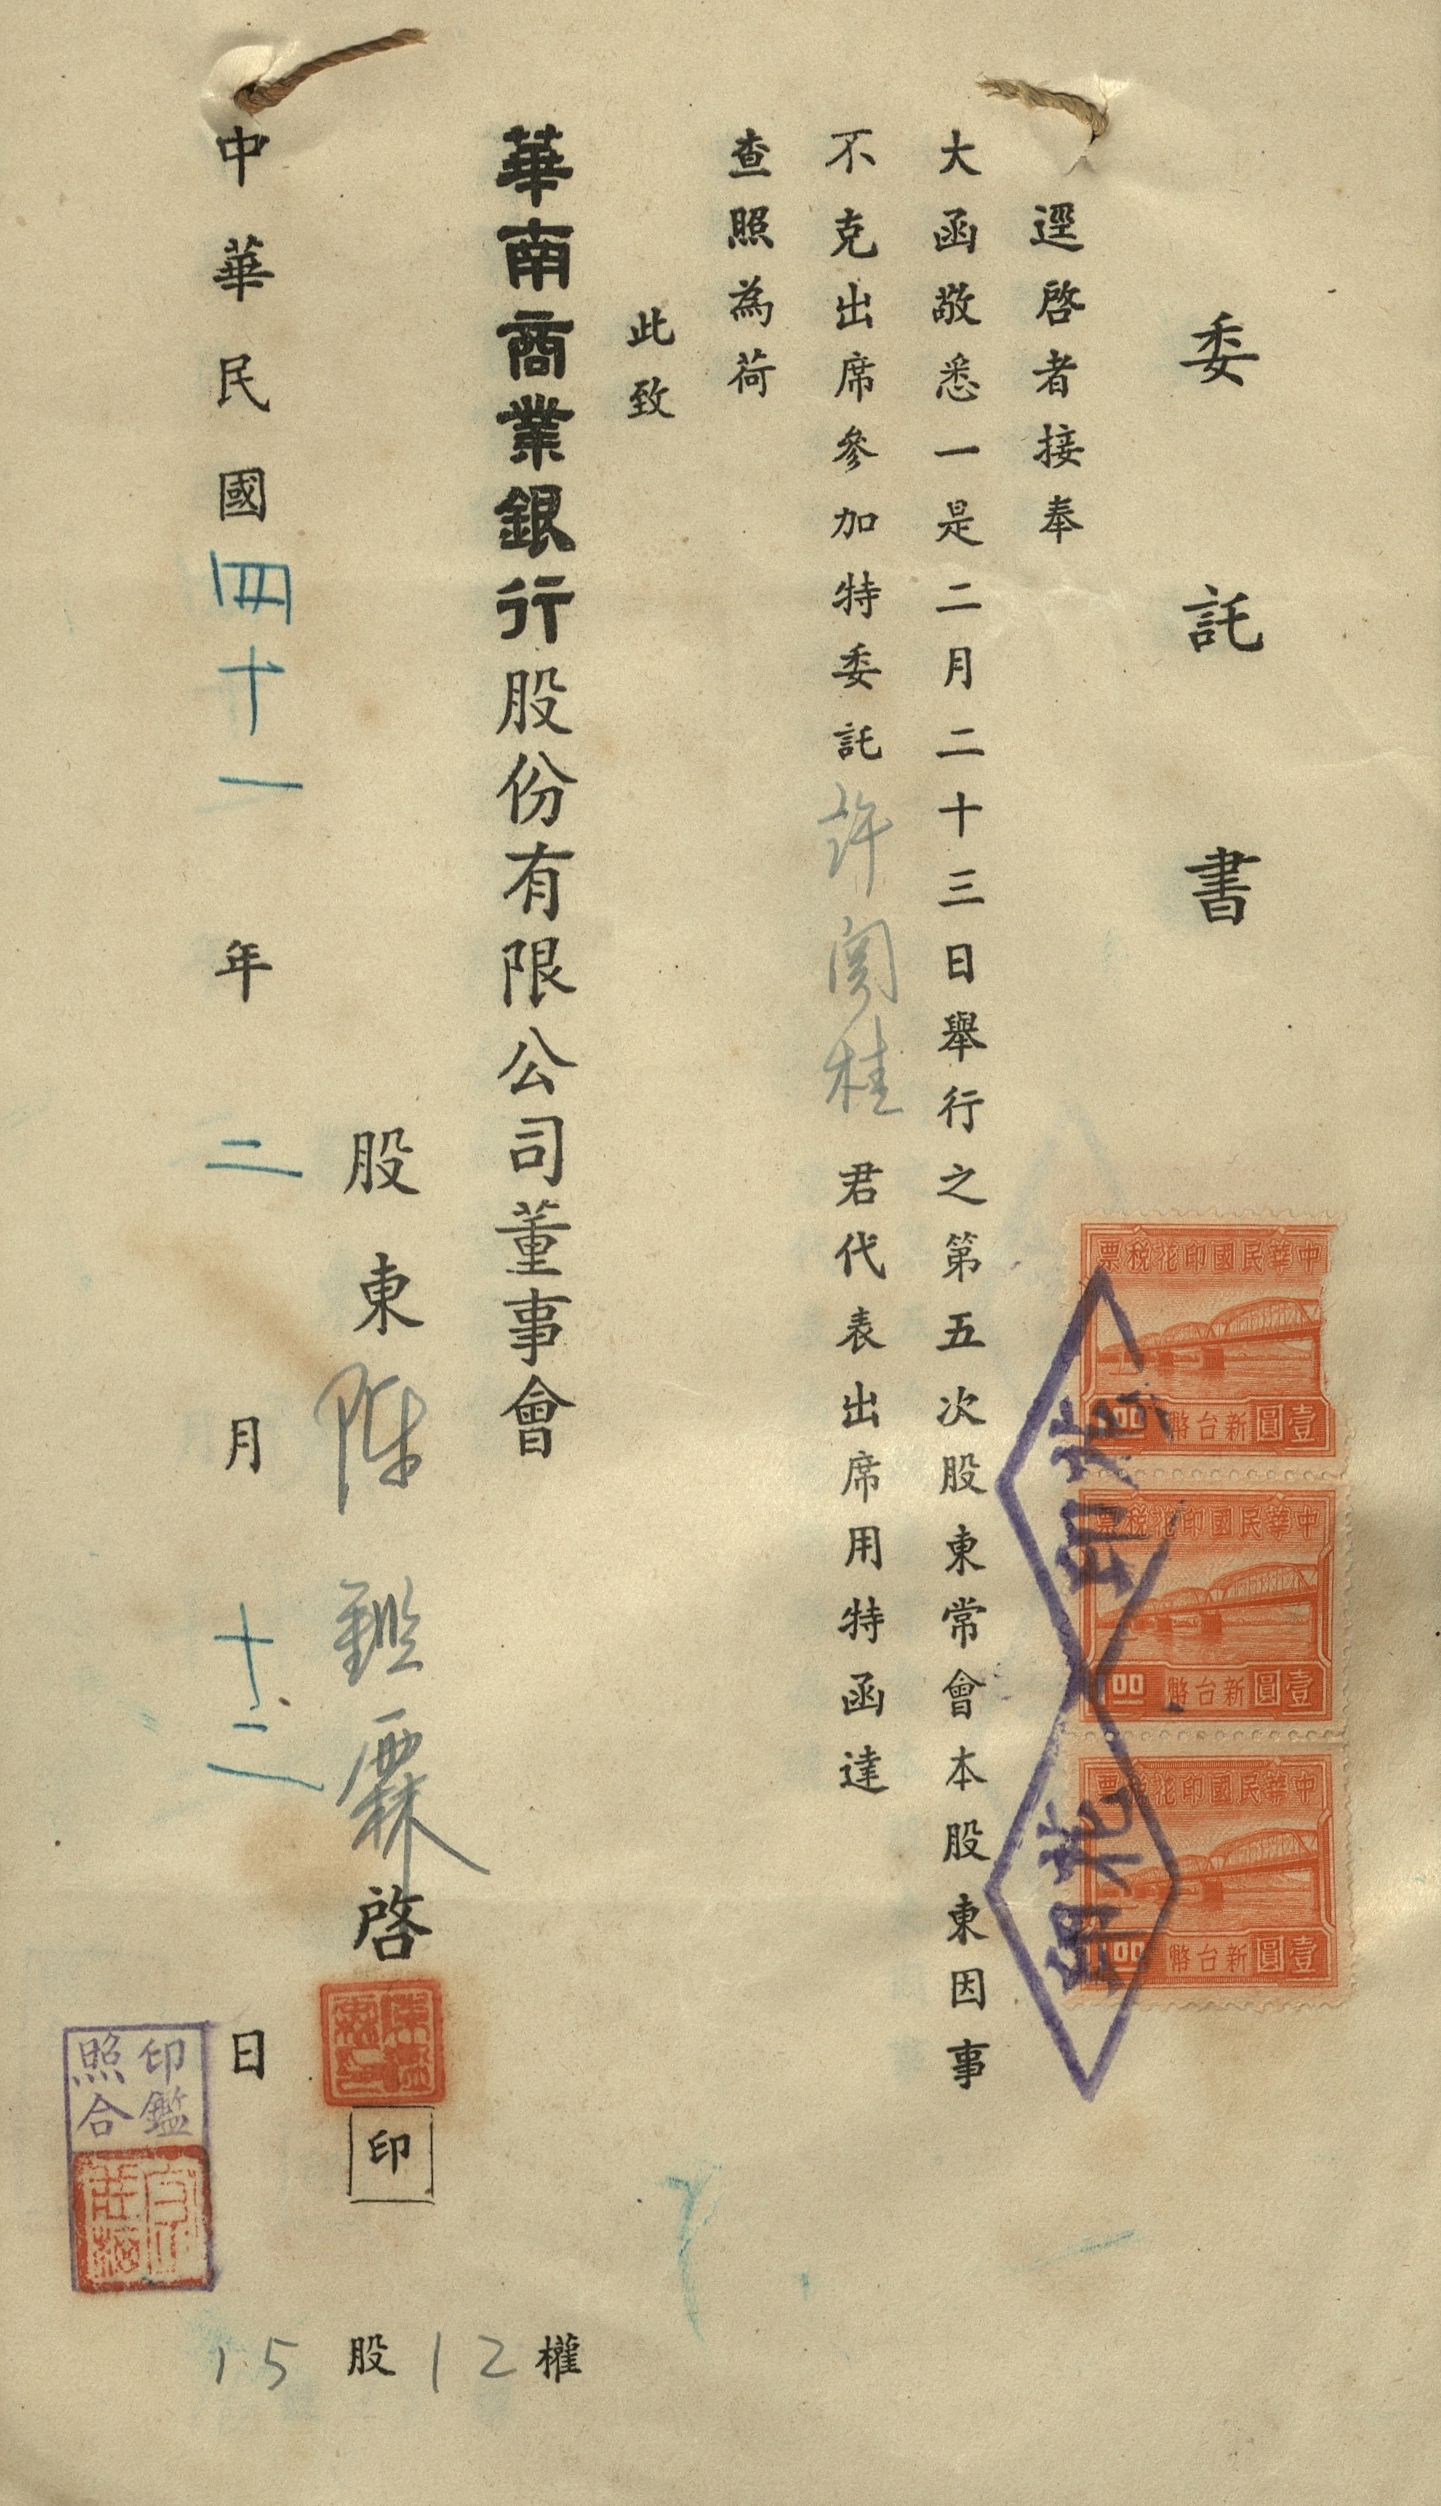 委託書
逕啓者接奉
大函敬悉一是二月二十三日舉行之第五次股東常會本股東因事
不克出席參加特委託許閱桂君代表出席用特函達
查照為荷
此致
華南商業銀行股份有限公司董事會
股東陳鑑霖啓
印
中華民國四十一年二月十二日
15股12權
印鑑
照合
中華民國印花稅票
新台幣壹圓
1.00
中華民國印花稅票
新台幣壹圓
1.00
中華民國印花稅票
新台幣壹圓
1.00
印花
印花